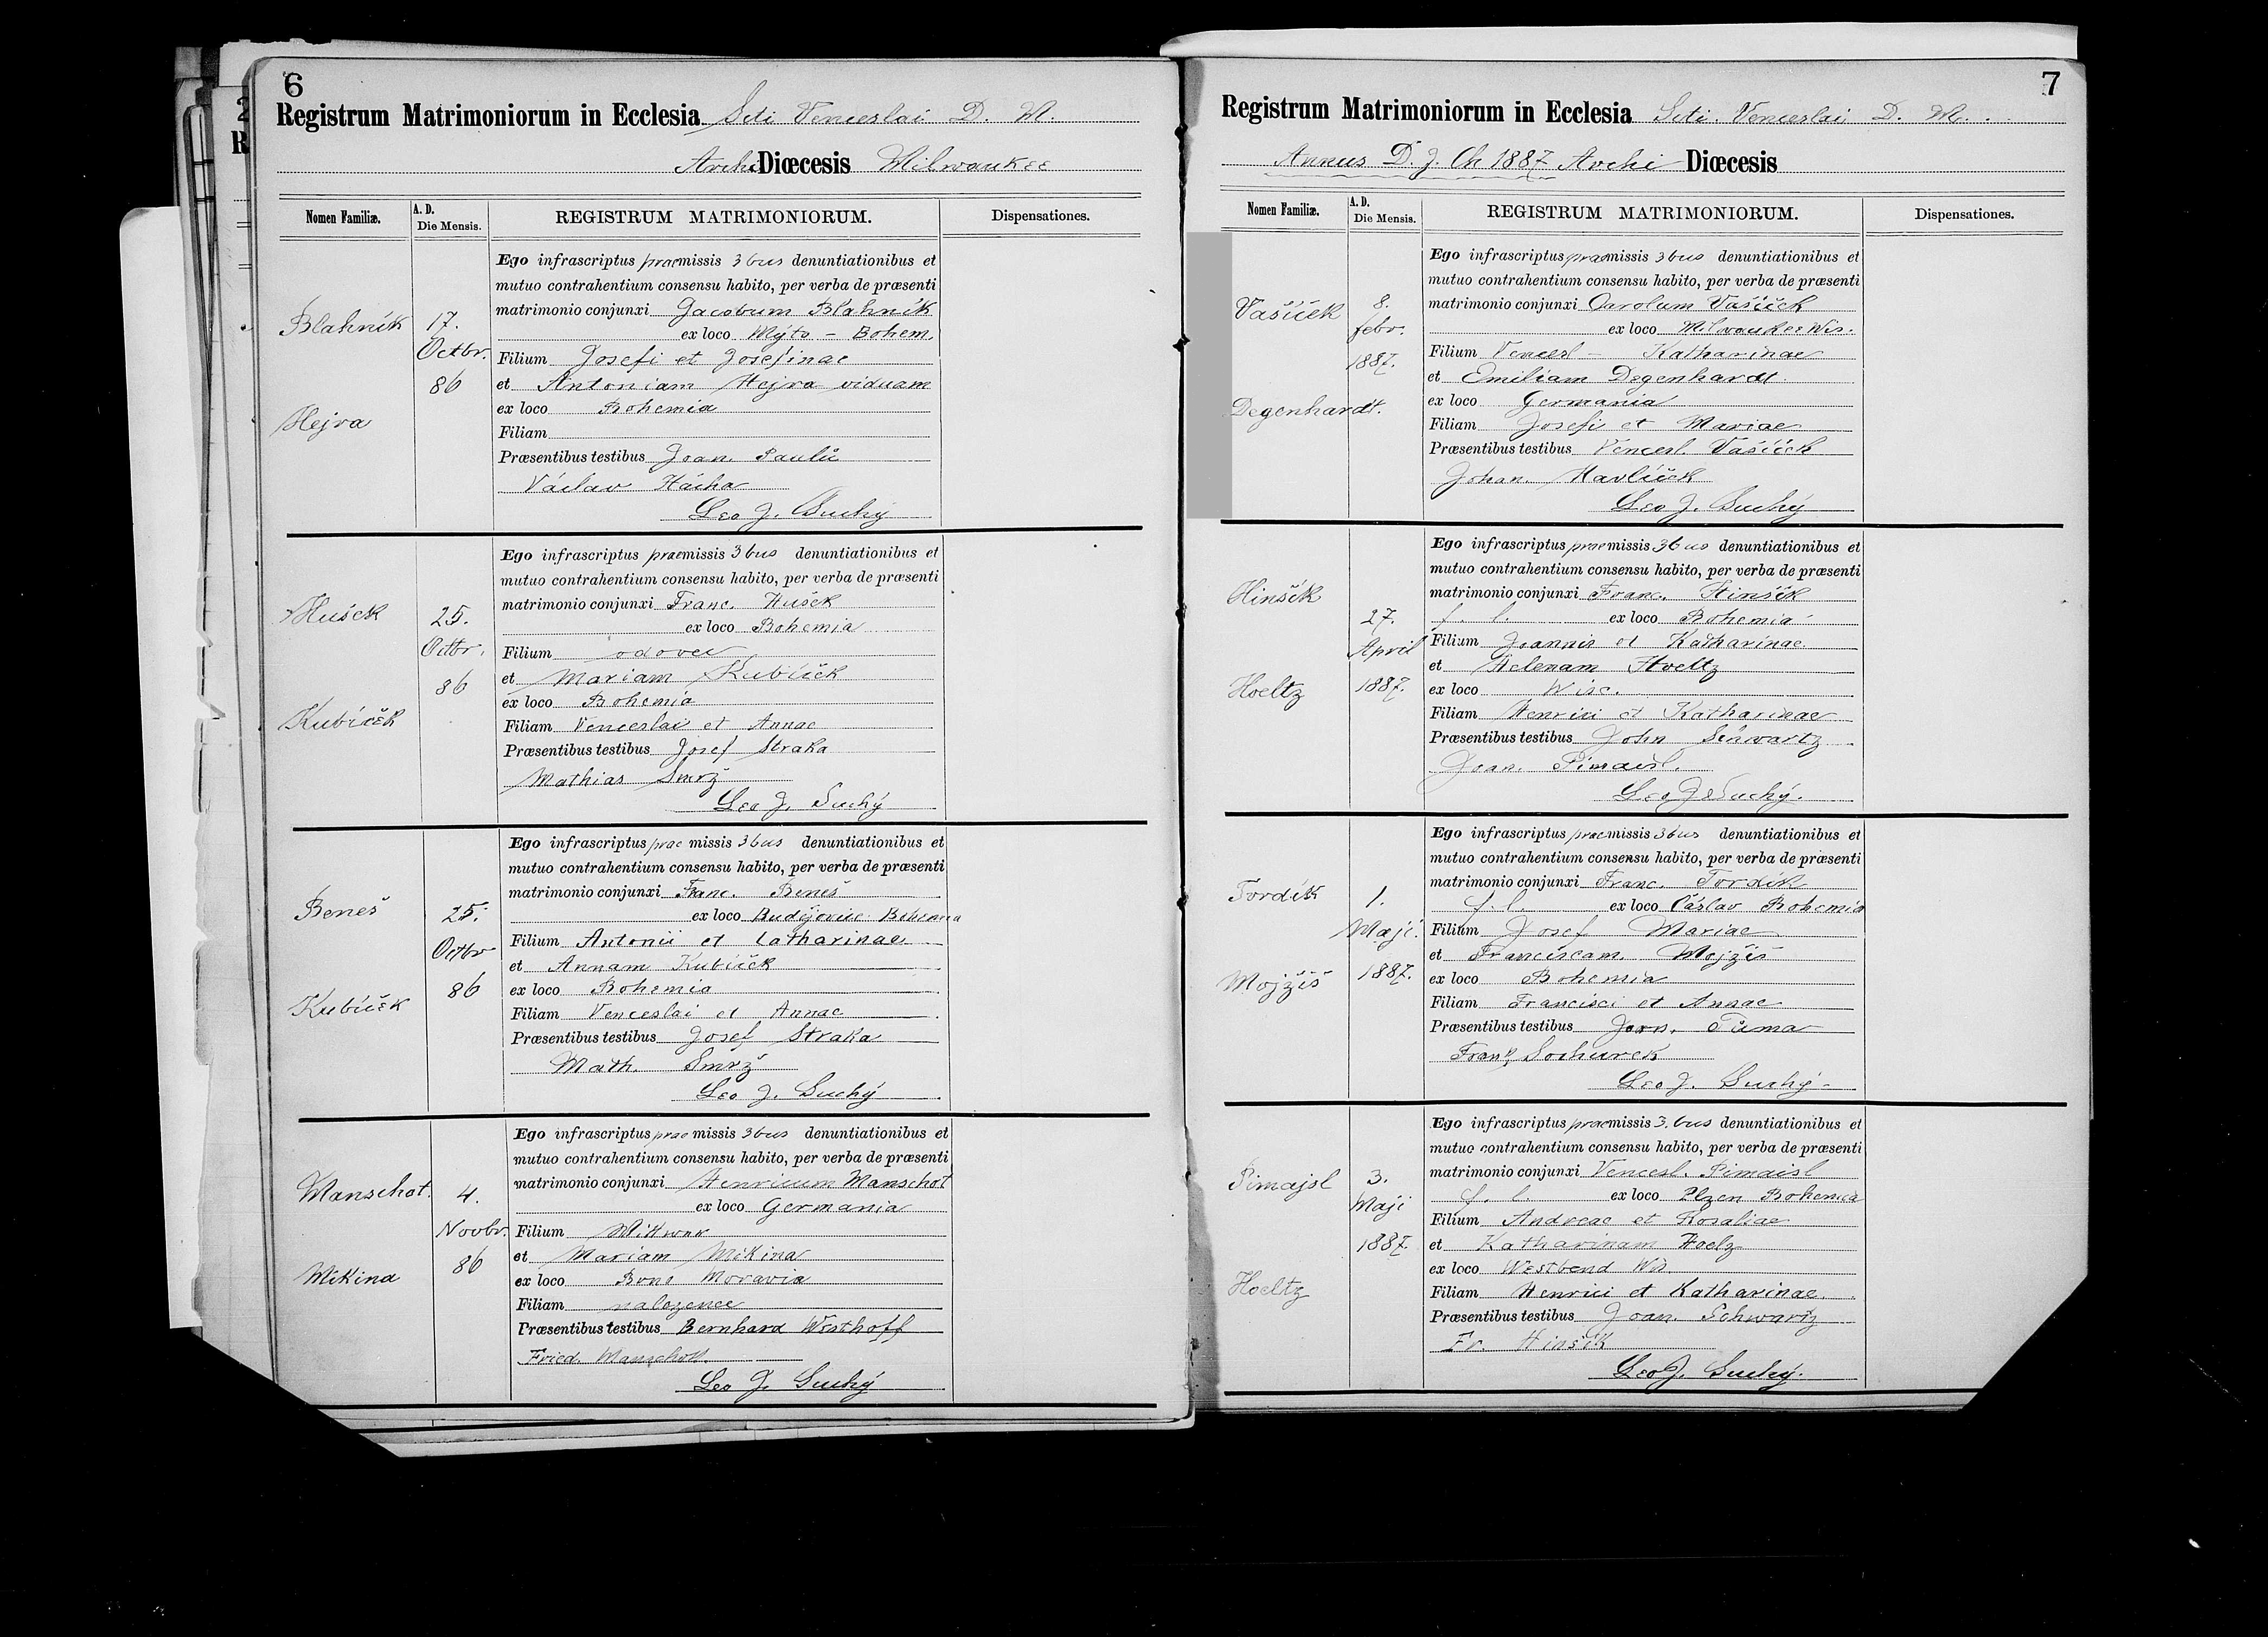 6
Registrum Matrimoniorum in Ecclesia Scti Venceslai D. M.
Archi Diœcesis Milwaukee
Nomen Familiæ. A. D. Die Mensis. REGISTRUM MATRIMONIORUM. Dispensationes.
Blahnik
Hejra
17.
Octbr.
86
Ego infrascriptus praemissis 3bus denuntiationibus et
mutuo contrahentium consensu habito, per verba de præsenti
matrimonio conjunxi Jacobum Blahnik
ex loco Mýto - Bohem.
Filium Josefi et Josefinae
et Antoniam Hejra viduam
ex loco Bohemia
Filiam
Præsentibus testibus Joan. Paulů
Václav Hácha
Leo J. Suchý
Hušek
Kubíček
25.
Octbr.
86
Ego infrascriptus praemissis 3bus denuntiationibus et
mutuo contrahentium consensu habito, per verba de præsenti
matrimonio conjunxi Franc. Hušek
ex loco Bohemia
Filium
et Mariam Kubíček
ex loco Bohemia
Filiam Venceslai et Annae
Præsentibus testibus Josef Straka
Mathias Smrž
Leo J. Suchý
Beneš
Kubíček
25.
Octbr
86
Ego infrascriptus prae missis 3bus denuntiationibus et
mutuo contrahentium consensu habito, per verba de præsenti
matrimonio conjunxi Franc. Beneš
ex loco Budějovic Bohemia
Filium Antonii et Catharinae
et Annam Kubíček
ex loco Bohemia
Filiam Venceslai et Annae
Præsentibus testibus Josef Straka
Math. Smrž
Leo J. Suchý
Manschot.
Mikina
4.
Novbr.
86
Ego infrascriptus prae missis 3bus denuntiationibus et
mutuo contrahentium consensu habito, per verba de præsenti
matrimonio conjunxi Henricum Manschot
ex loco Germania
Filium
et Mariam Mikina
ex loco Brno Moravia
Filiam nalezenec
Præsentibus testibus Bernhard Westhoff
Fried. Manschott.
Leo J. Suchý
7
Registrum Matrimoniorum in Ecclesia Scti. Venceslai D. M.
Annus D. J. Ch 1887 Archi Diœcesis
Nomen Familiæ. A. D. Die Mensis. REGISTRUM MATRIMONIORUM. Dispensationes.
Vašíček
Degenhardt.
8.
febr.
1887.
Ego infrascriptus praemissis 3bus denuntiationibus et
mutuo contrahentium consensu habito, per verba de præsenti
matrimonio conjunxi Carolum Vašíček
ex loco Milwaukee Wis.
Filium Vencesl - Katharinae
et Emiliam Degenhardt.
ex loco Germania
Filiam Josefi et Mariae
Præsentibus testibus Vencesl. Vašíček
Johan. Havlíček
Leo J. Suchý
Hinšík
Hoeltz
27.
April
1887.
Ego infrascriptus praemissis 3bus denuntiationibus et
mutuo contrahentium consensu habito, per verba de præsenti
matrimonio conjunxi Franc. Hinšík
f. l. ex loco Bohemia
Filium Joannis et Katharinae
et Helenam Hoeltz
ex loco Wisc.
Filiam Henrici et Katharinae
Præsentibus testibus John Schwartz
Joan. Pimaisl.
Leo J Suchý.
Tordik
Mojžiš
1.
Maji.
1887.
Ego infrascriptus praemissis 3bus denuntiationibus et
mutuo contrahentium consensu habito, per verba de præsenti
matrimonio conjunxi Franc. Tordik
f. l. ex loco Čáslav Bohemia
Filium Josef Mariae
et Franciscam Mojžiš
ex loco Bohemia
Filiam Francisci et Annae
Præsentibus testibus Joan. Tůma
Frant. Sochurek
Leo J. Suchý-
Pimajsl
Hoeltz
3.
Maji
1887.
Ego infrascriptus praemissis 3.bus denuntiationibus et
mutuo contrahentium consensu habito, per verba de præsenti
matrimonio conjunxi Vencesl. Pimaisl
f. l. ex loco Plzen Bohemia
Filium Andreae et Rosaliae
et Katharinam Hoelz
ex loco Westbend Wis
Filiam Henrici et Katharinae.
Præsentibus testibus Joan. Schwartz
Fr. Hinšík
Leo J. Suchý.